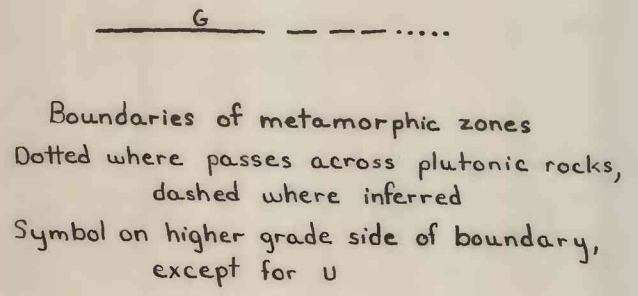 G
Boundaries of metamorphic zones
Dotted where passes across plutonic rocks,
dashed where inferred
Symbol on higher grade side of boundary,
except for U